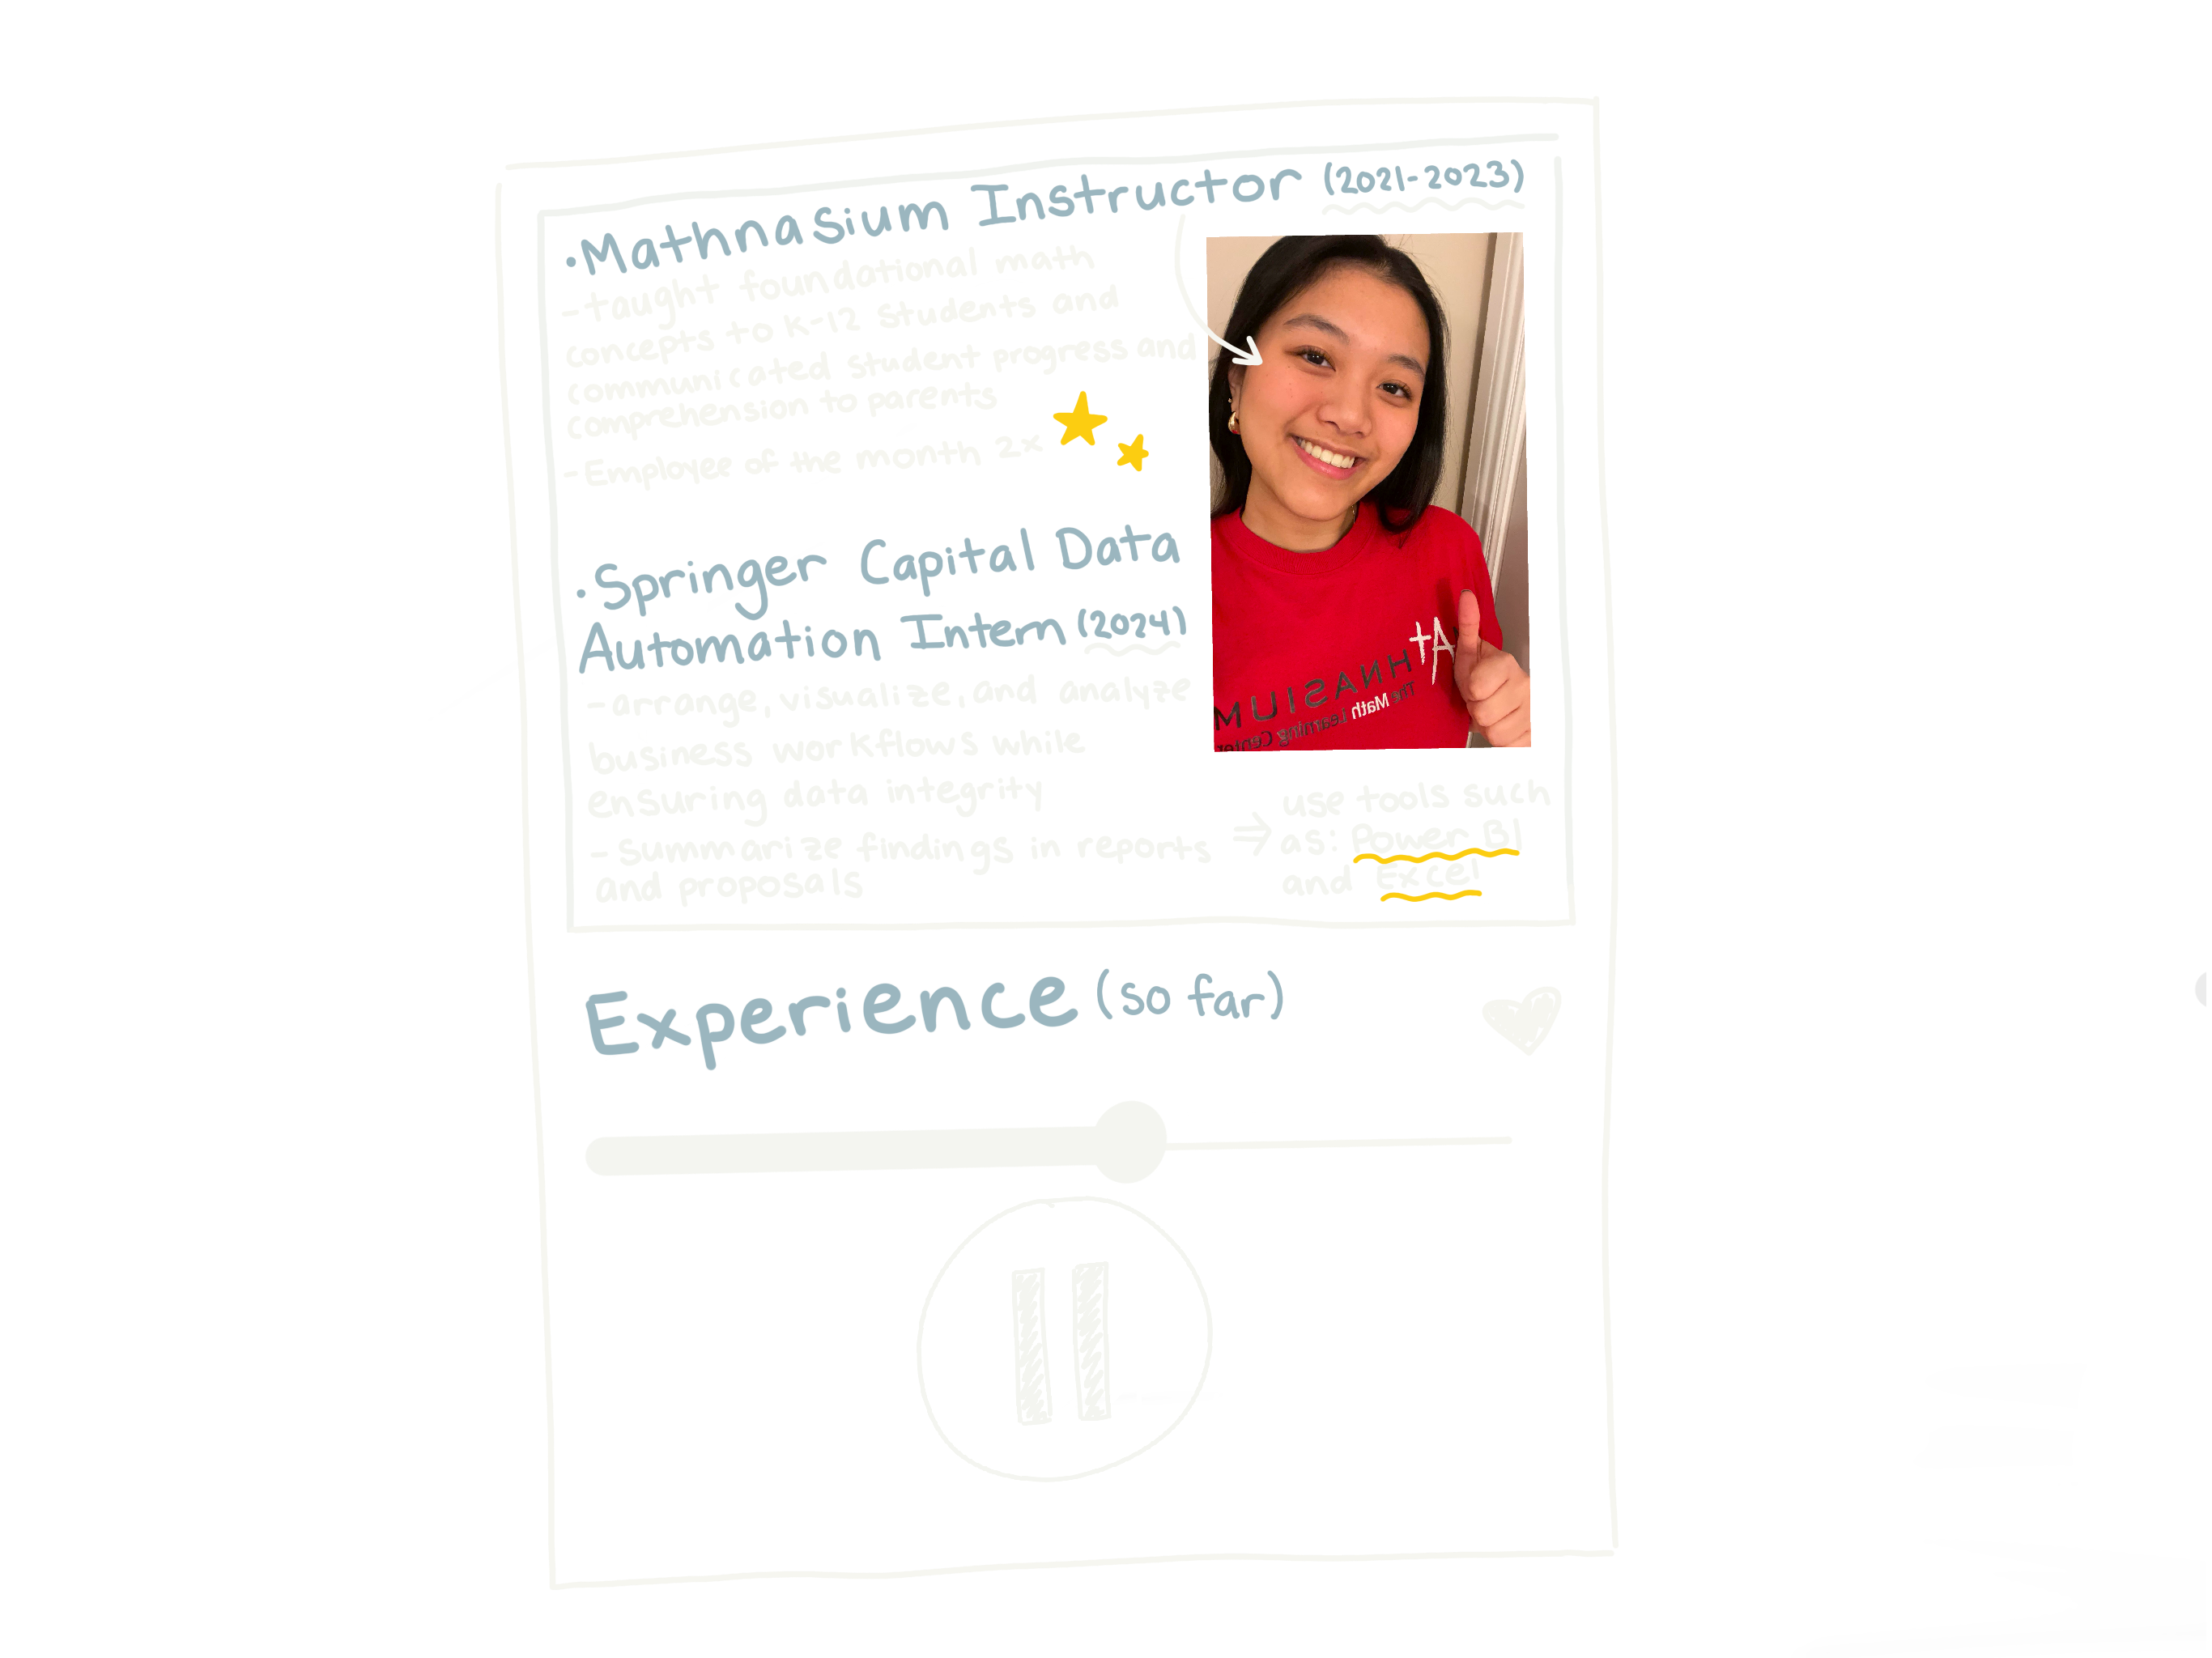 •Mathnasium Instructor (2021-2023)
-taught foundational math
concepts to K-12 students and
communicated student progress and
comprehension to parents
-Employee of the month 2x
•Springer Capital Data
Automation Intern (2024)
-arrange, visualize, and analyze
business workflows while
ensuring data integrity
-summarize findings in reports
and proposals
⇒ use tools such
as: Power BI
and Excel
MAtHNASIUM
The Math Learning Center
Experience (so far)